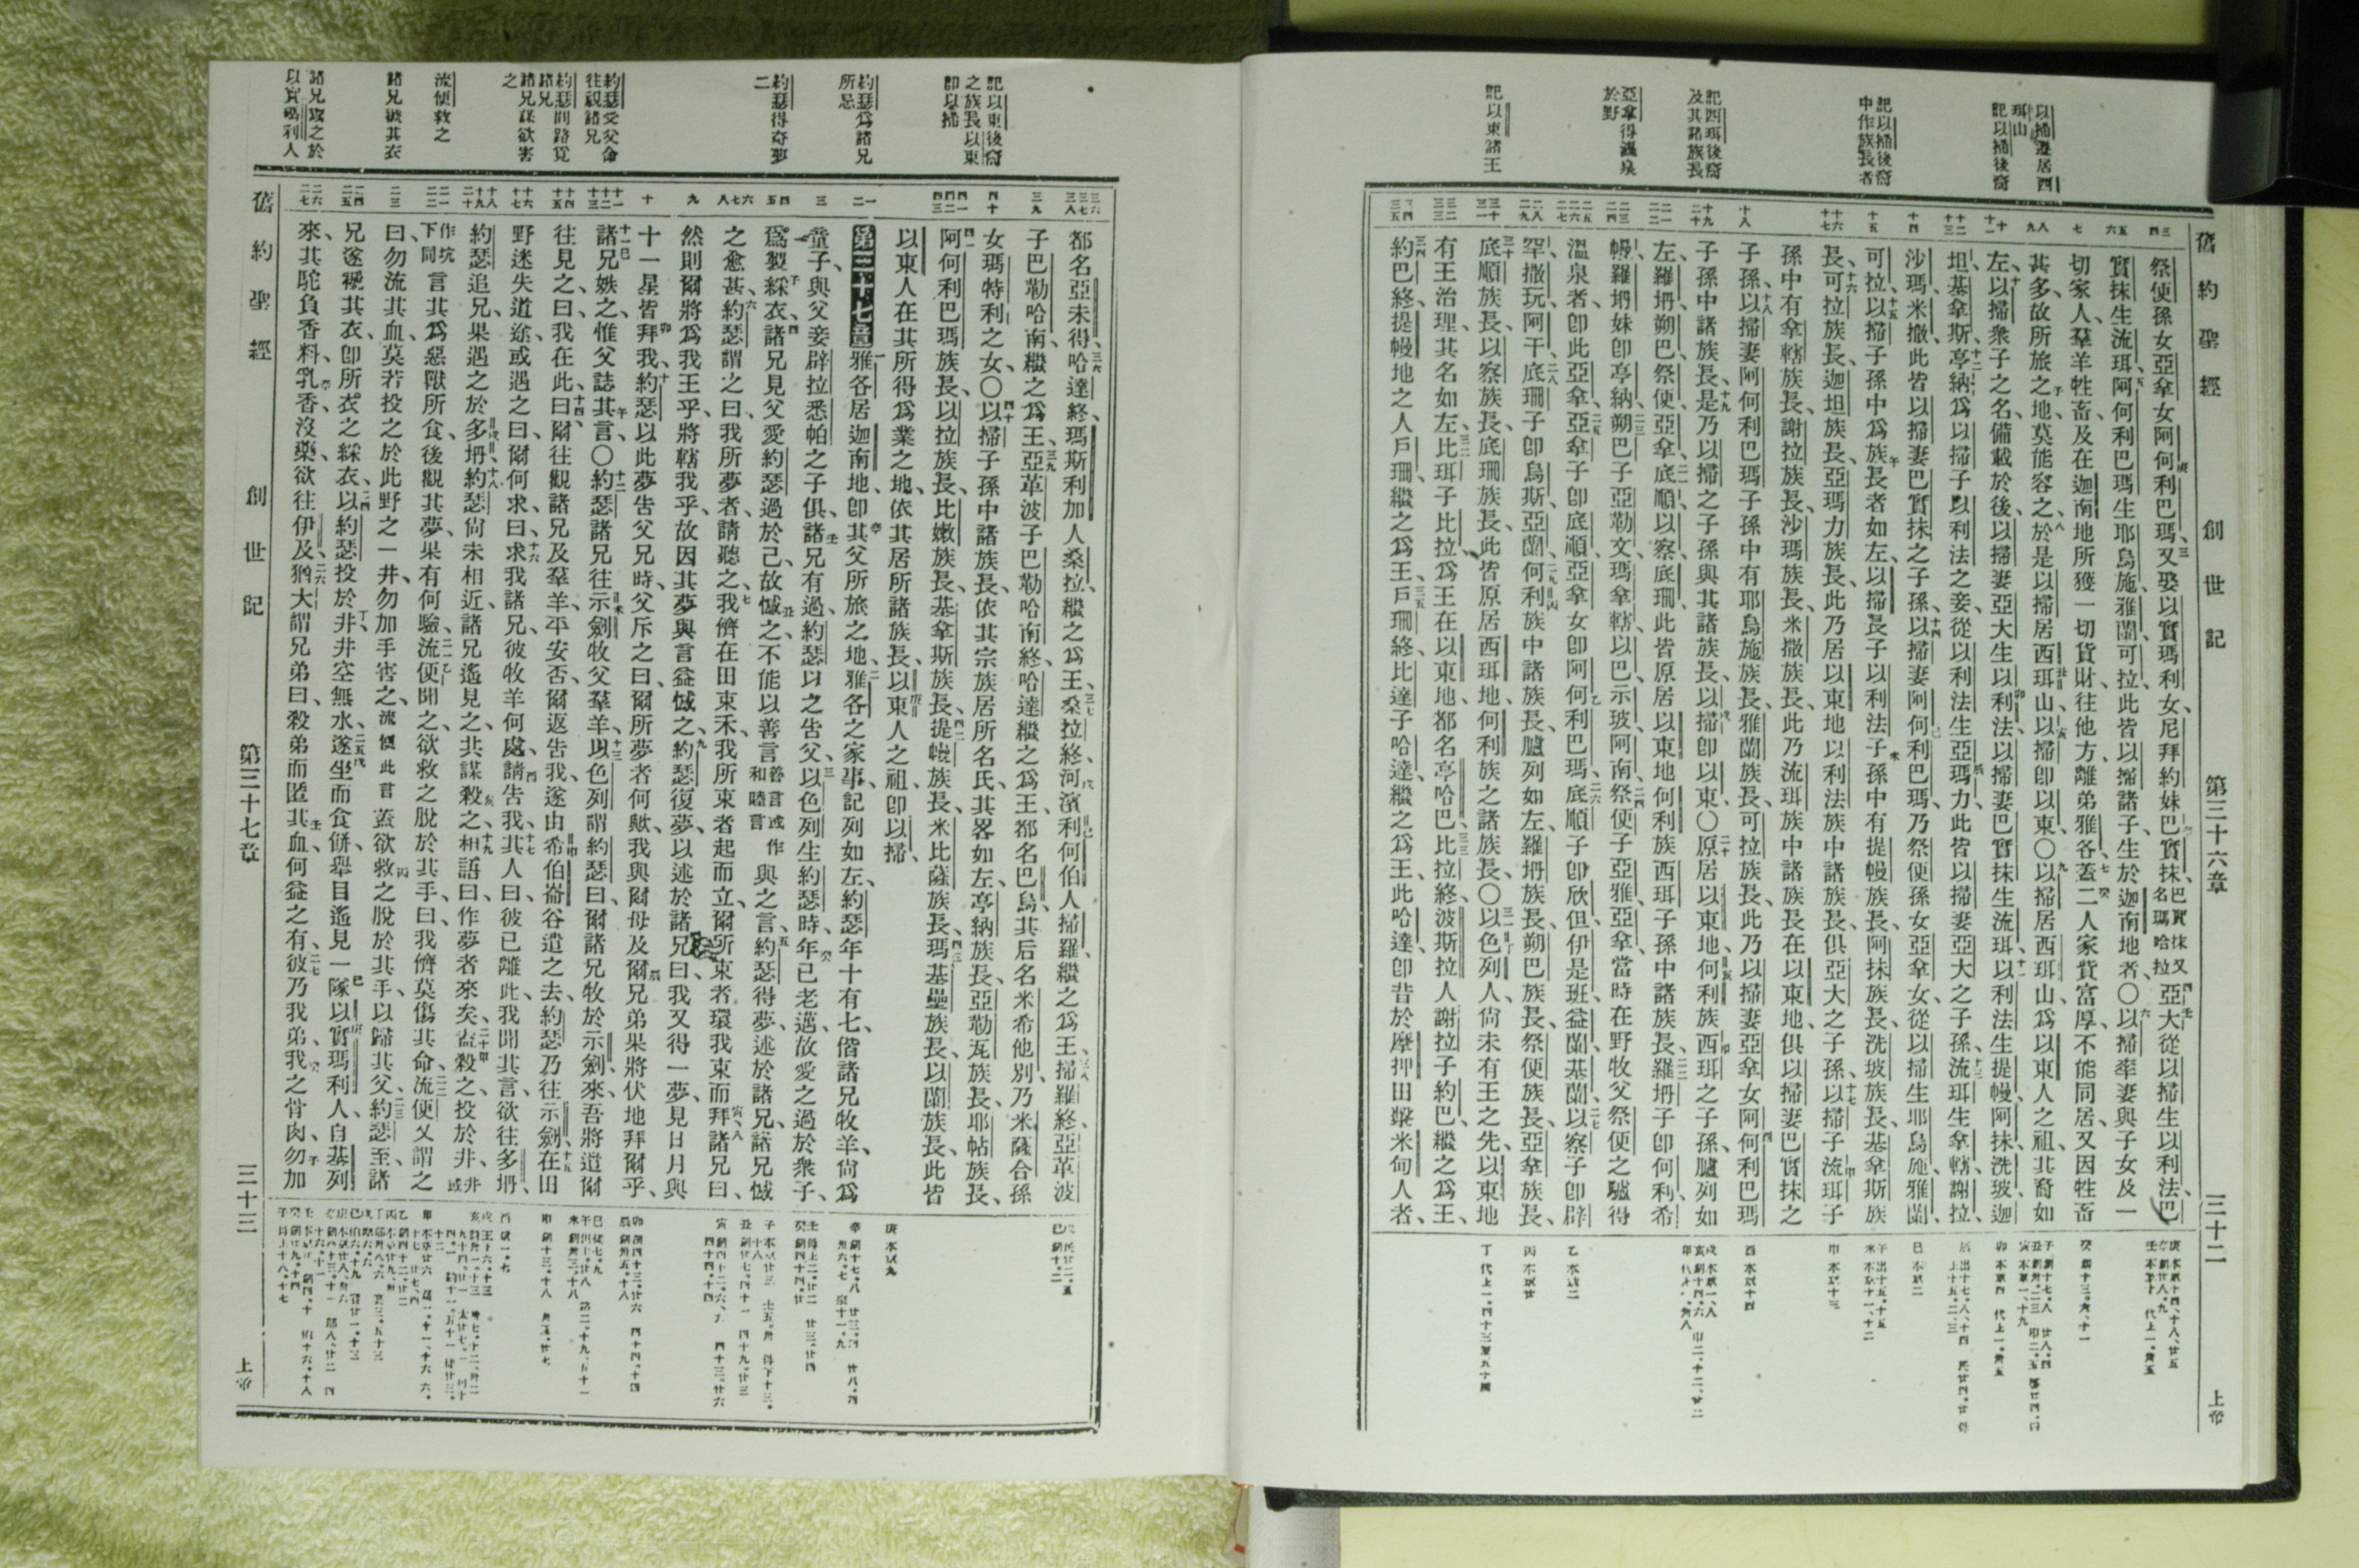 舊約聖經 創世記 第三十六章 三十二 上帝
以掃遷居西
珥山
記以掃後裔
記以掃後裔
中作族長者
記西珥後裔
及其諸族長
亞拿得溫泉
於野
記以東諸王
祭便孫女亞拿女阿何利巴瑪、又娶以實瑪利女尼拜約妹巴實抹、巴實抹又名瑪哈拉亞大從以掃生以利法、巴
實抹生流珥、阿何利巴瑪生耶烏施、雅蘭、可拉、此皆以掃諸子、生於迦南地者、〇以掃率妻與子女及一
切家人、羣羊牲畜、及在迦南地所獲一切貨財、往他方離弟雅各、蓋二人家貲富厚、不能同居、又因牲畜
甚多、故所旅之地、莫能容之、於是以掃居西珥山、以掃卽以東、〇以掃居西珥山、爲以東人之祖、其裔如
左、以掃衆子之名、備載於後、以掃妻亞大生以利法、以掃妻巴實抹生流珥、以利法生提幔、阿抹、洗玻、迦
坦、基拿斯、亭納爲以掃子以利法之妾、從以利法生亞瑪力、此皆以掃妻亞大之子孫、流珥生拿轄、謝拉、
沙瑪、米撒、此皆以掃妻巴實抹之子孫、以掃妻阿何利巴瑪、乃祭便孫女亞拿女、從以掃生耶烏施、雅蘭、
可拉、以掃子孫中爲族長者如左、以掃長子以利法子孫中、有提幔族長、阿抹族長、洗玻族長、基拿斯族
長、可拉族長、迦坦族長、亞瑪力族長、此乃居以東地、以利法族中諸族長、俱亞大之子孫、以掃子流珥子
孫中有拿轄族長、謝拉族長、沙瑪族長、米撒族長、此乃流珥族中諸族長、在以東地、俱以掃妻巴實抹之
子孫、以掃妻阿何利巴瑪子孫中、有耶烏施族長、雅蘭族長、可拉族長、此乃以掃妻亞拿女阿何利巴瑪
子孫中諸族長、是乃以掃之子孫與其諸族長、以掃卽以東、〇原居以東地何利族西珥之子孫、臚列如
左、羅坍、朔巴、祭便、亞拿、底順、以察、底珊、此皆原居以東地何利族西珥子孫中諸族長、羅坍子卽何利、希
幔、羅坍妹卽亭納、朔巴子亞勒文、瑪拿轄、以巴、示玻、阿南、祭便子亞雅、亞拿、當時在野牧父祭便之驢、得
溫泉者、卽此亞拿、亞拿子卽底順、亞拿女卽阿何利巴瑪、底順子卽欣但、伊是班、益蘭、基蘭、以察子卽辟
罕、撒玩、阿干、底珊子卽烏斯、亞蘭、何利族中諸族長、臚列如左、羅坍族長、朔巴族長、祭便族長、亞拿族長、
底順族長、以察族長、底珊族長、此皆原居西珥地、何利族之諸族長、〇以色列人尙未有王之先、以東地
有王治理、其名如左、比珥子比拉爲王在以東地、都名亭哈巴、比拉終、波斯拉人謝拉子約巴繼之爲王、
約巴終、提幔地之人戶珊繼之爲王、戶珊終、比達子哈達、繼之爲王、此哈達、卽昔於摩押田擊米甸人者、
記以東後裔
之族長以東
卽以掃
約瑟爲諸兄
所忌
約瑟得奇夢
二
約瑟受父命
往視諸兄
約瑟問路覓
諸兄
諸兄謀欲害
之
流便救之
諸兄褫其衣
諸兄鬻之於
以實瑪利人
都名亞未得、哈達終、瑪斯利加人桑拉繼之爲王、桑拉終、河濱利何伯人掃羅繼之爲王、掃羅終、亞革波
子巴勒哈南繼之爲王、亞革波子巴勒哈南終、哈達繼之爲王、都名巴烏、其后名米希他別、乃米薩合孫
女瑪特利之女、〇以掃子孫中諸族長、依其宗族居所名氏、其畧如左、亭納族長、亞勒瓦族長、耶帖族長、
阿何利巴瑪族長、以拉族長、比嫩族長、基拿斯族長、提幔族長、米比薩族長、瑪基疊族長、以蘭族長、此皆
以東人在其所得爲業之地、依其居所諸族長、以東人之祖、卽以掃、
第三十七章 雅各居迦南地、卽其父所旅之地、雅各之家事、記列如左、約瑟年十有七、偕諸兄牧羊、尙爲
童子、與父妾辟拉悉帕之子俱、諸兄有過、約瑟以之告父、以色列生約瑟時、年已老邁、故愛之過於衆子、
爲製綵衣、諸兄見父愛約瑟過於己、故憾之、不能以善言善言或作和睦言與之言、約瑟得夢、述於諸兄、諸兄憾
之愈甚、約瑟謂之曰、我所夢者、請聽之、我儕在田束禾、我所束者起而立、爾所束者環我束而拜、諸兄曰、
然則爾將爲我王乎、將轄我乎、故因其夢與言益憾之、約瑟復夢、以述於諸兄曰、我又得一夢、見日月與
十一星皆拜我、約瑟以此夢告父兄時、父斥之曰、爾所夢者何歟、我與爾母及爾兄弟、果將伏地拜爾乎、
諸兄嫉之、惟父誌其言、〇約瑟諸兄往示劍牧父羣羊、以色列謂約瑟曰、爾諸兄牧於示劍、來、吾將遣爾
往見之、曰、我在此、曰、爾往觀諸兄及羣羊平安否、爾返告我、遂由希伯崙谷遣之去、約瑟乃往示劍、在田
野迷失道途、或遇之曰、爾何求、曰、求我諸兄、彼牧羊何處、請告我、其人曰、彼已離此、我聞其言、欲往多坍、
約瑟追兄、果遇之於多坍、約瑟尙未相近、諸兄遙見之、共謀殺之、相語曰、作夢者來矣、盍殺之、投於井、井或
作坑下同言其爲惡獸所食、後觀其夢、果有何驗、流便聞之、欲救之脫於其手、曰、我儕莫傷其命、流便又謂之
曰、勿流其血、莫若投之於此野之一井、勿加手害之、流便此言蓋欲救之脫於其手、以歸其父、約瑟至諸
兄、遂褫其衣、卽所衣之綵衣、以約瑟投於井、井空無水、遂坐而食餅、舉目遙見一隊以實瑪利人、自基列
來、其駝負香料、乳香、沒藥、欲往伊及、猶大謂兄弟曰、殺弟而匿其血、何益之有、彼乃我弟、我之骨肉、勿加
舊約聖經 創世記 第三十七章 三十三 上帝